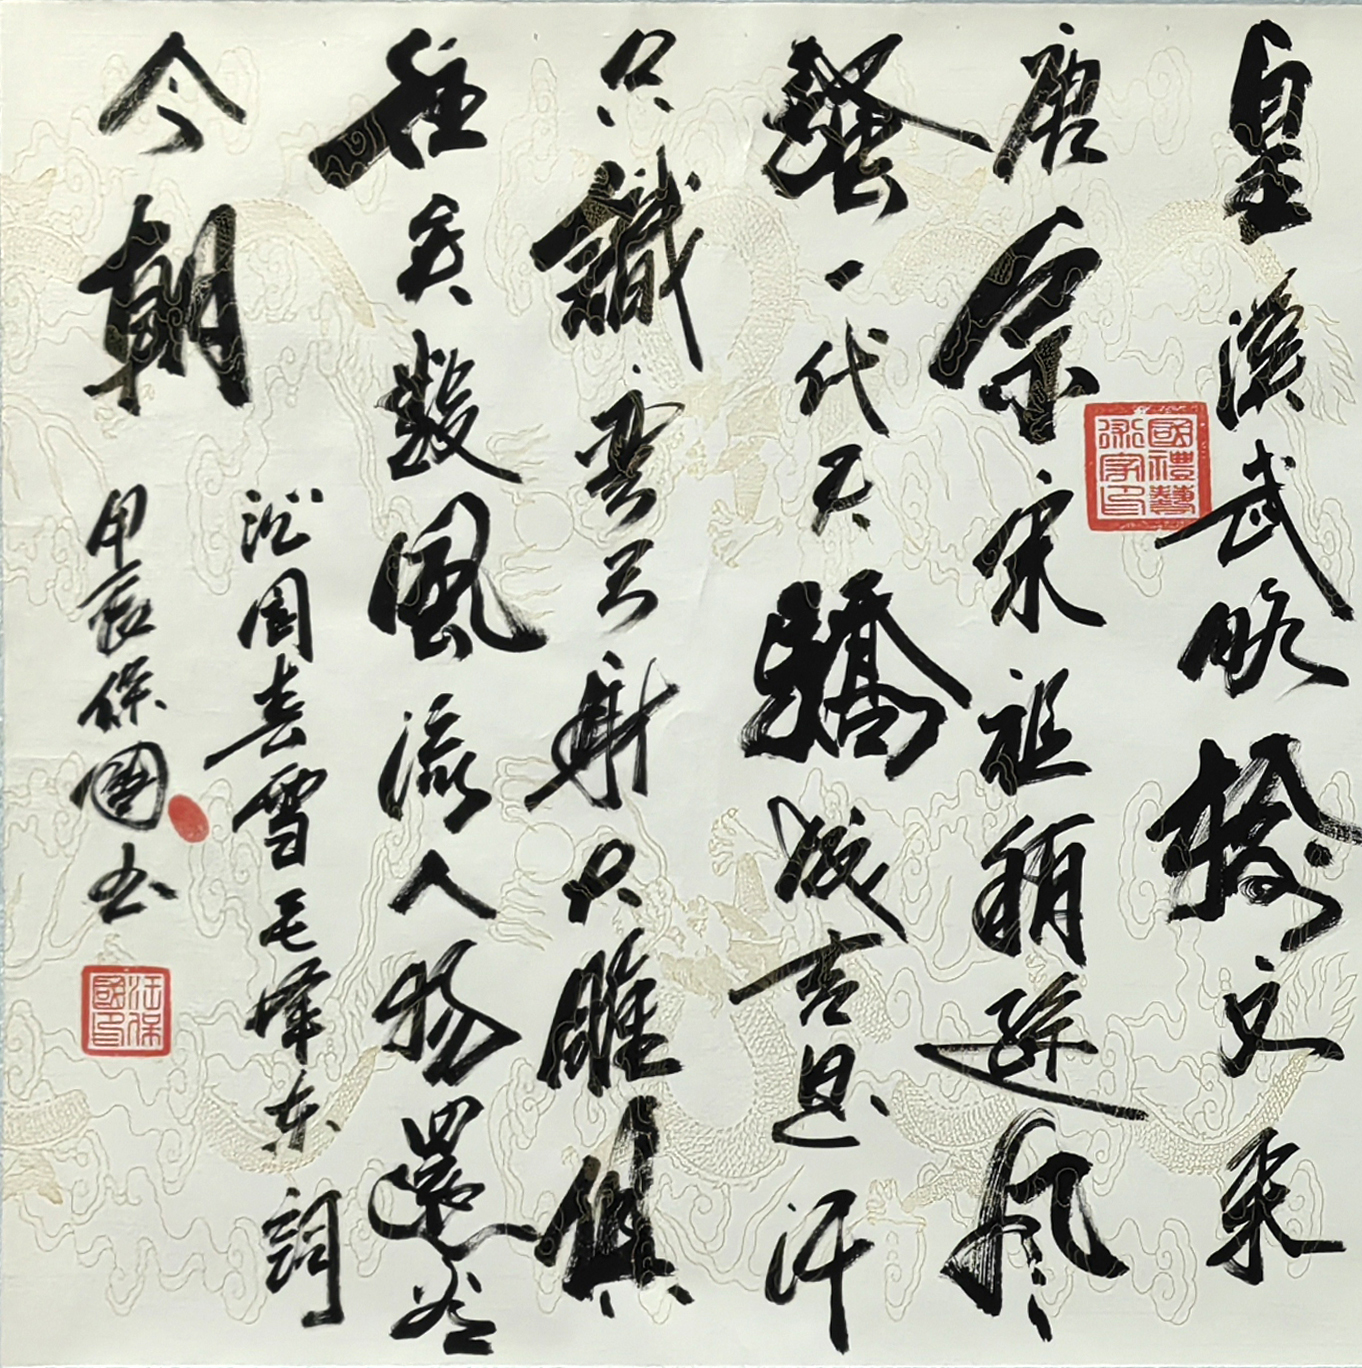 皇漢武略輸文采
唐宗宋祖稍遜風
騷一代天驕成吉思汗
只識彎弓射大雕俱
往矣數風流人物還看
今朝
沁园春雪毛泽东詞
甲辰保國书
國禮藝術家印
汪保國印